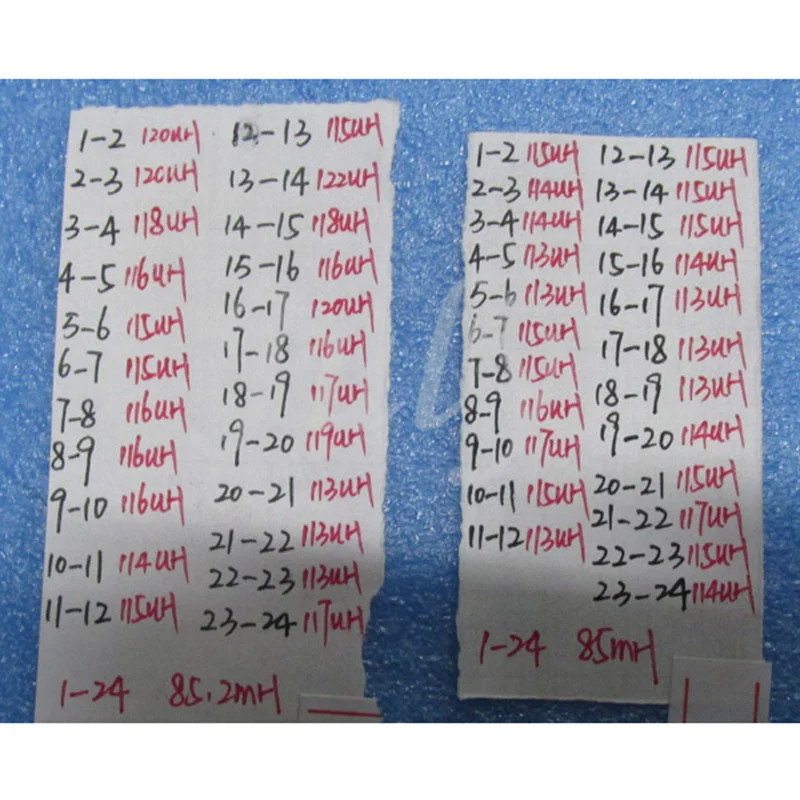 1-2 120uH
2-3 120uH
3-4 118uH
4-5 116uH
5-6 115uH
6-7 115uH
7-8 116uH
8-9 116uH
9-10 116uH
10-11 114uH
11-12 115uH
12-13 115uH
13-14 122uH
14-15 118uH
15-16 116uH
16-17 120uH
17-18 116uH
18-19 117uH
19-20 119uH
20-21 113uH
21-22 113uH
22-23 113uH
23-24 117uH
1-24 85.2mH
1-2 115uH
2-3 114uH
3-4 114uH
4-5 113uH
5-6 113uH
6-7 115uH
7-8 115uH
8-9 116uH
9-10 117uH
10-11 115uH
11-12 113uH
12-13 115uH
13-14 115uH
14-15 115uH
15-16 114uH
16-17 113uH
17-18 113uH
18-19 113uH
19-20 114uH
20-21 115uH
21-22 117uH
22-23 115uH
23-24 114uH
1-24 85mH